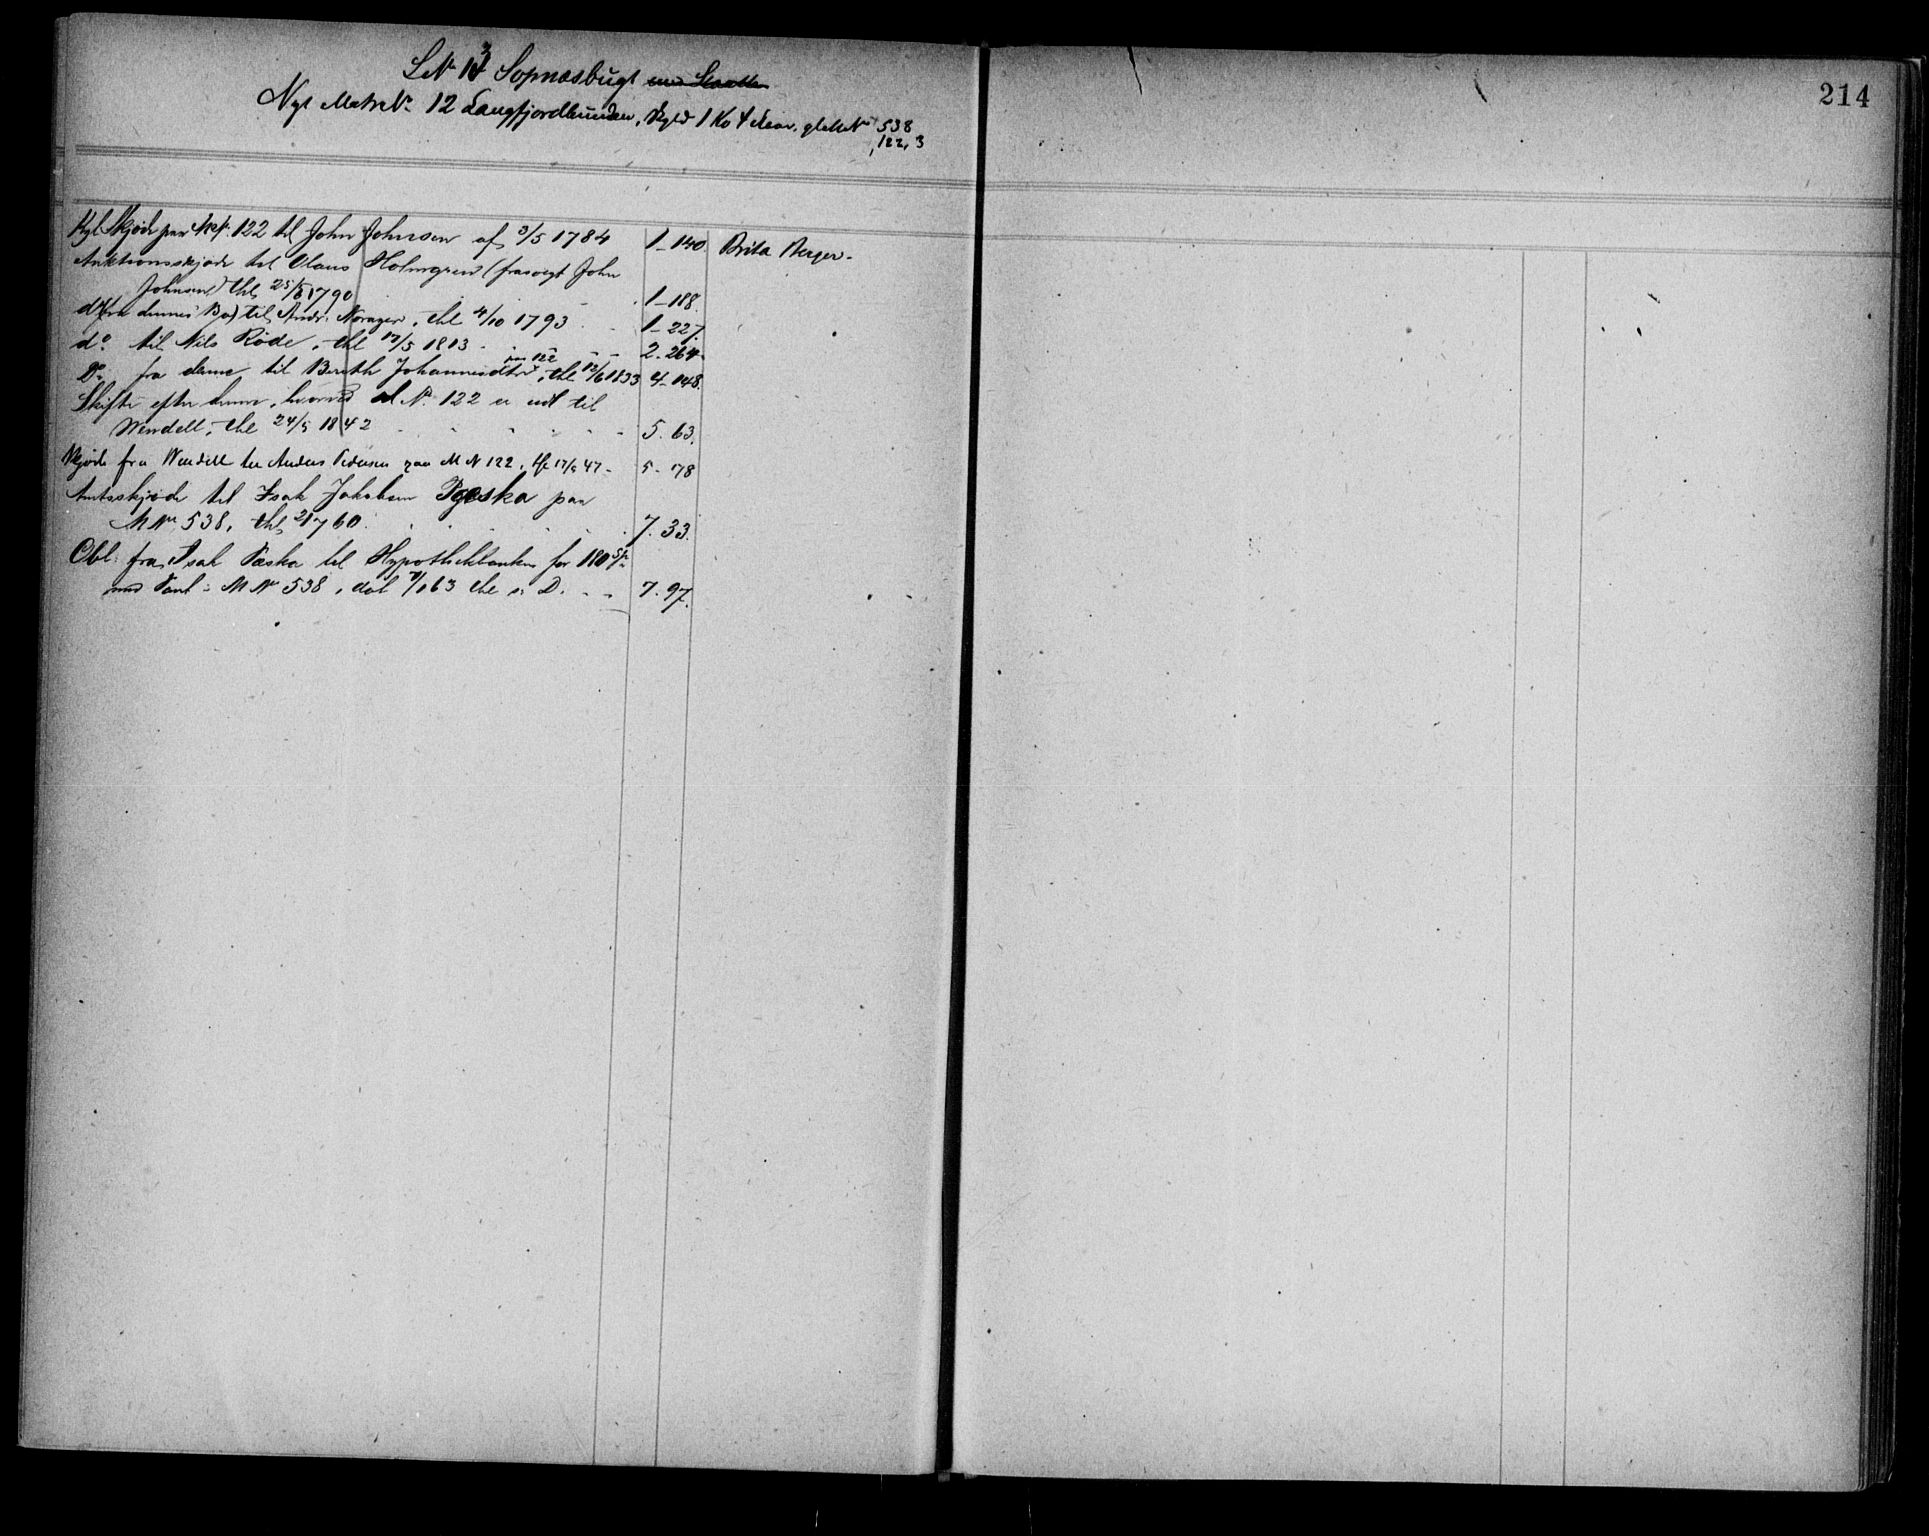 LNr 13 Sopnæsbugt
214
Nyt MatrNr 12 Langfjordbunden, Skyld 1 Ko 4 Lam, gl MNr 538
122, 3
Kgl Skjøde paa MNr. 122 til John Johnsen af 3/5 1784 1-140. Brita Berger.
Auktionsskjøde til Claus Holmgren (frasolgt John
Johnsen) thl 25/5 1790 1-188.
do (fra dennes Bo) til Andr. Norager, thl 4/10 1793 1-227.
do. til Nils Røde, thl 12/5 1813 - 2-264.
Do. fra denne til Bereth Johannesdtr paa 122, thl 12/6 1833 4-148.
Skifte efter denne, hvorved MNr. 122 er udl til
Wendell, thl 24/5 1842 5. 63.
Skjøde fra Wendell til Anders Pedersen paa M N 122, thl 17/5 47 - 5-78
Amtsskjøde til Isak Jakobsen Pæska paa
MNr 538, thl 21/7 60. 7. 33.
Obl: fra Isak Pæska til Hypothekbanken for 180 Sp
med Pant i MNr 538, dat 63 thl s. D. - - 7. 97.